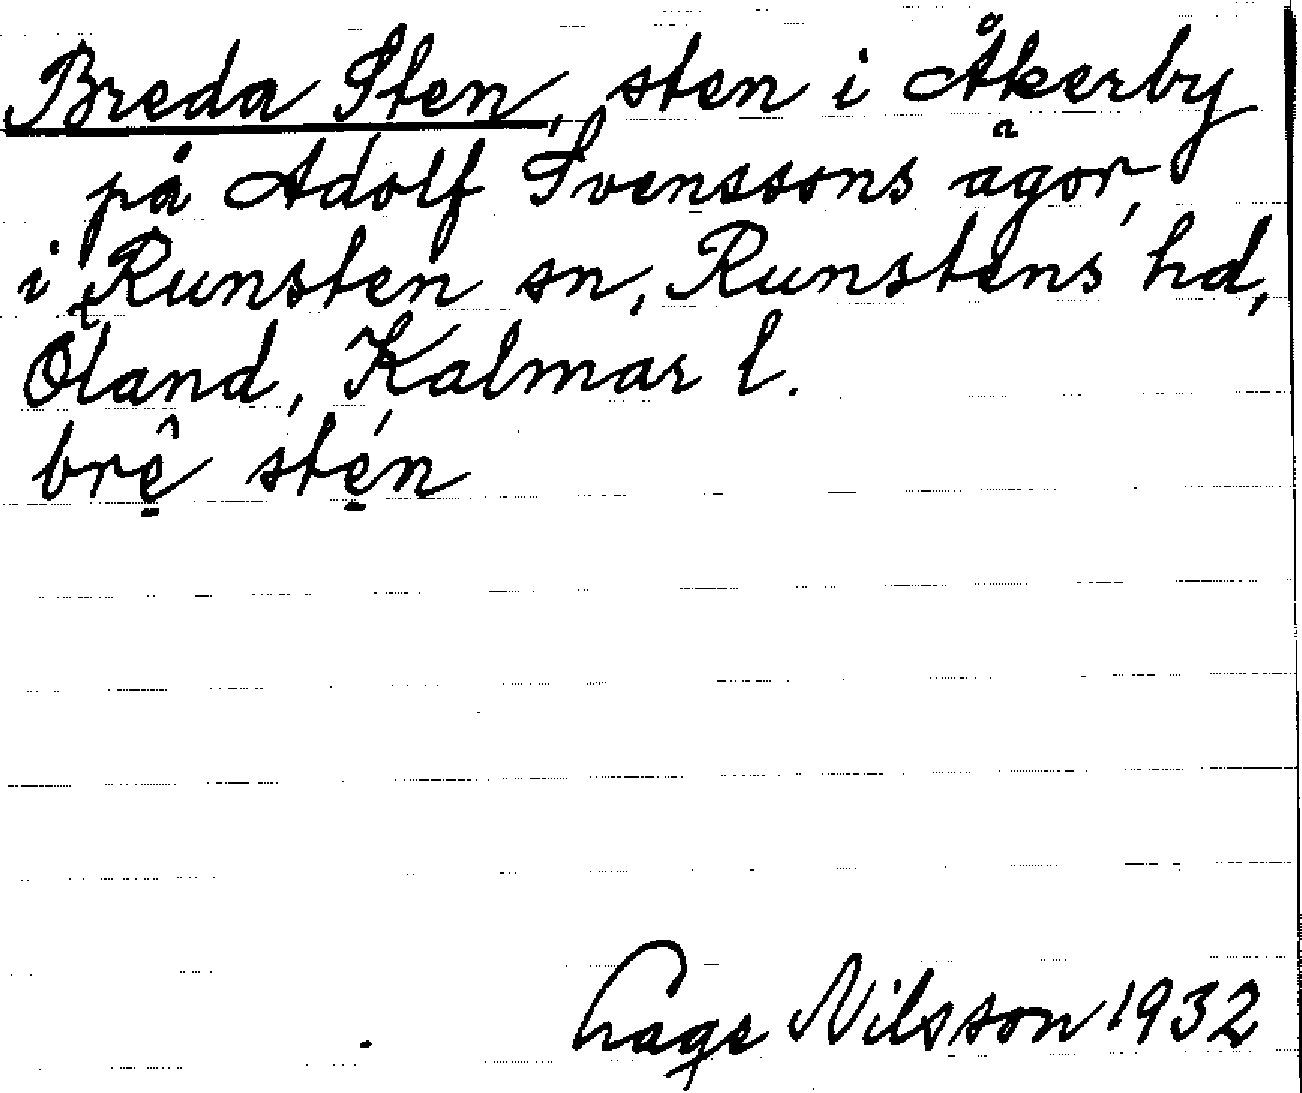 Breda Sten, sten i Åkerby
på Adolf Svenssons ägor,
i Runsten sn, Runstens hd,
Öland, Kalmar l.
brê̠ sté̠n
Hage Nilsson 1932